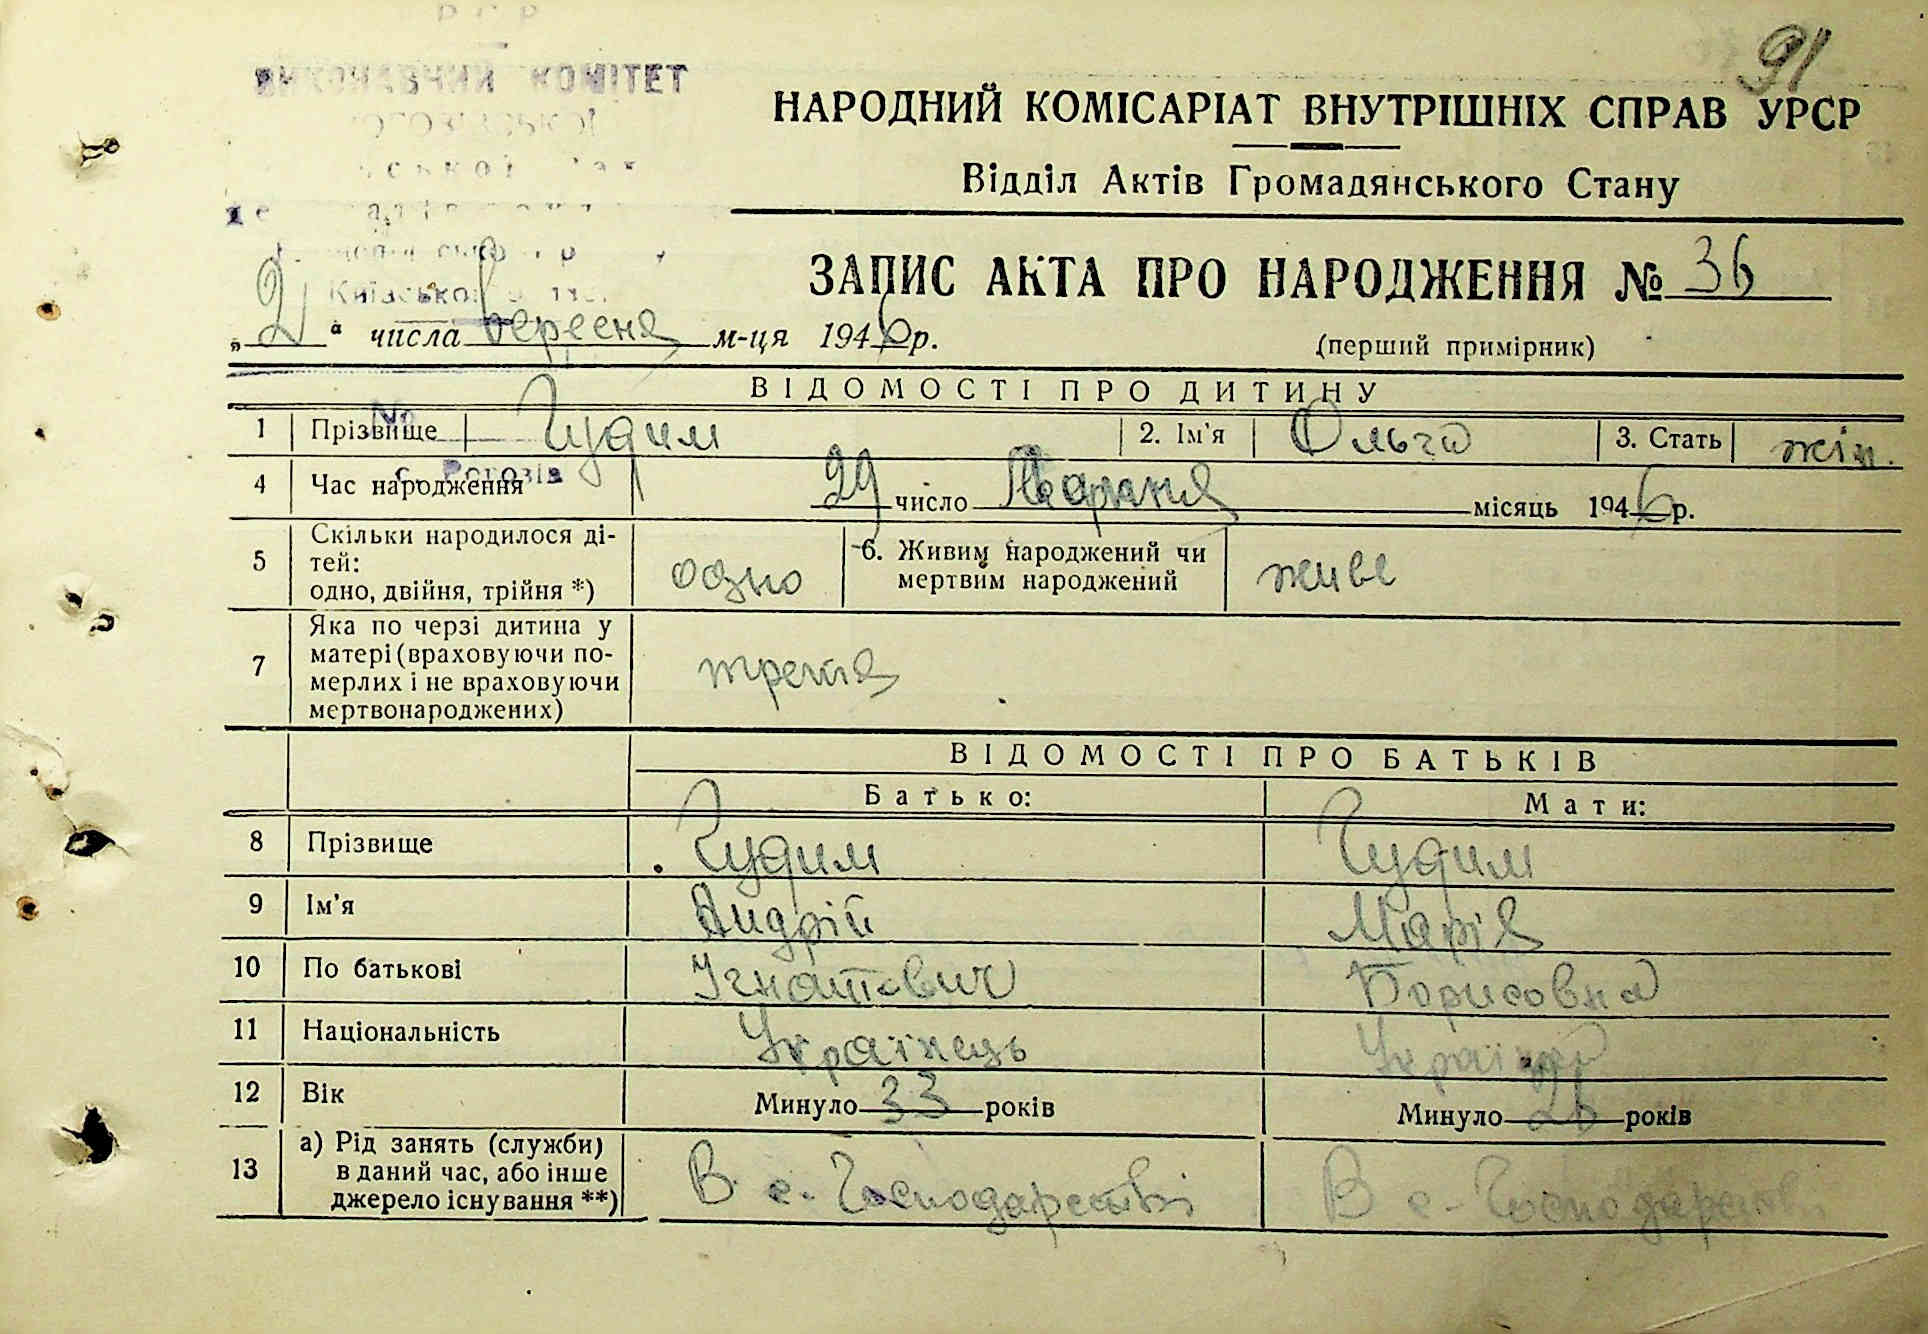 91
ВИКОНАВЧИЙ КОМІТЕТ
НАРОДНИЙ КОМІСАРІАТ ВНУТРІШНІХ СПРАВ УРСР
Відділ Актів Громадянського Стану
Київської
ЗАПИС АКТА ПРО НАРОДЖЕННЯ № 36
„2" числа вересня м-ця 1946 р.
(перший примірник)
ВІДОМОСТІ ПРО ДИТИНУ
№
1 Прізвище Гудим 2. Ім'я Ольга 3. Стать жін.
с. Рогозів
4 Час народження 29 число місяць 1946 р.
5 Скільки народилося ді-
тей:
одно, двійня, трійня *) одно
6. Живим народжений чи
мертвим народжений живе
7 Яка по черзі дитина у
матері (враховуючи по-
мерлих і не враховуючи
мертвонароджених) третя
ВІДОМОСТІ ПРО БАТЬКІВ
Батько: Мати:
8 Прізвище Гудим Гудим
9 Ім'я Андрій Марія
10 По батькові Ігнатович Борисовна
11 Національність Українець Українка
12 Вік Минуло 33 років Минуло років
13 а) Рід занять (служби)
в даний час, або інше
джерело існування **) В с-господарстві В с-господарстві